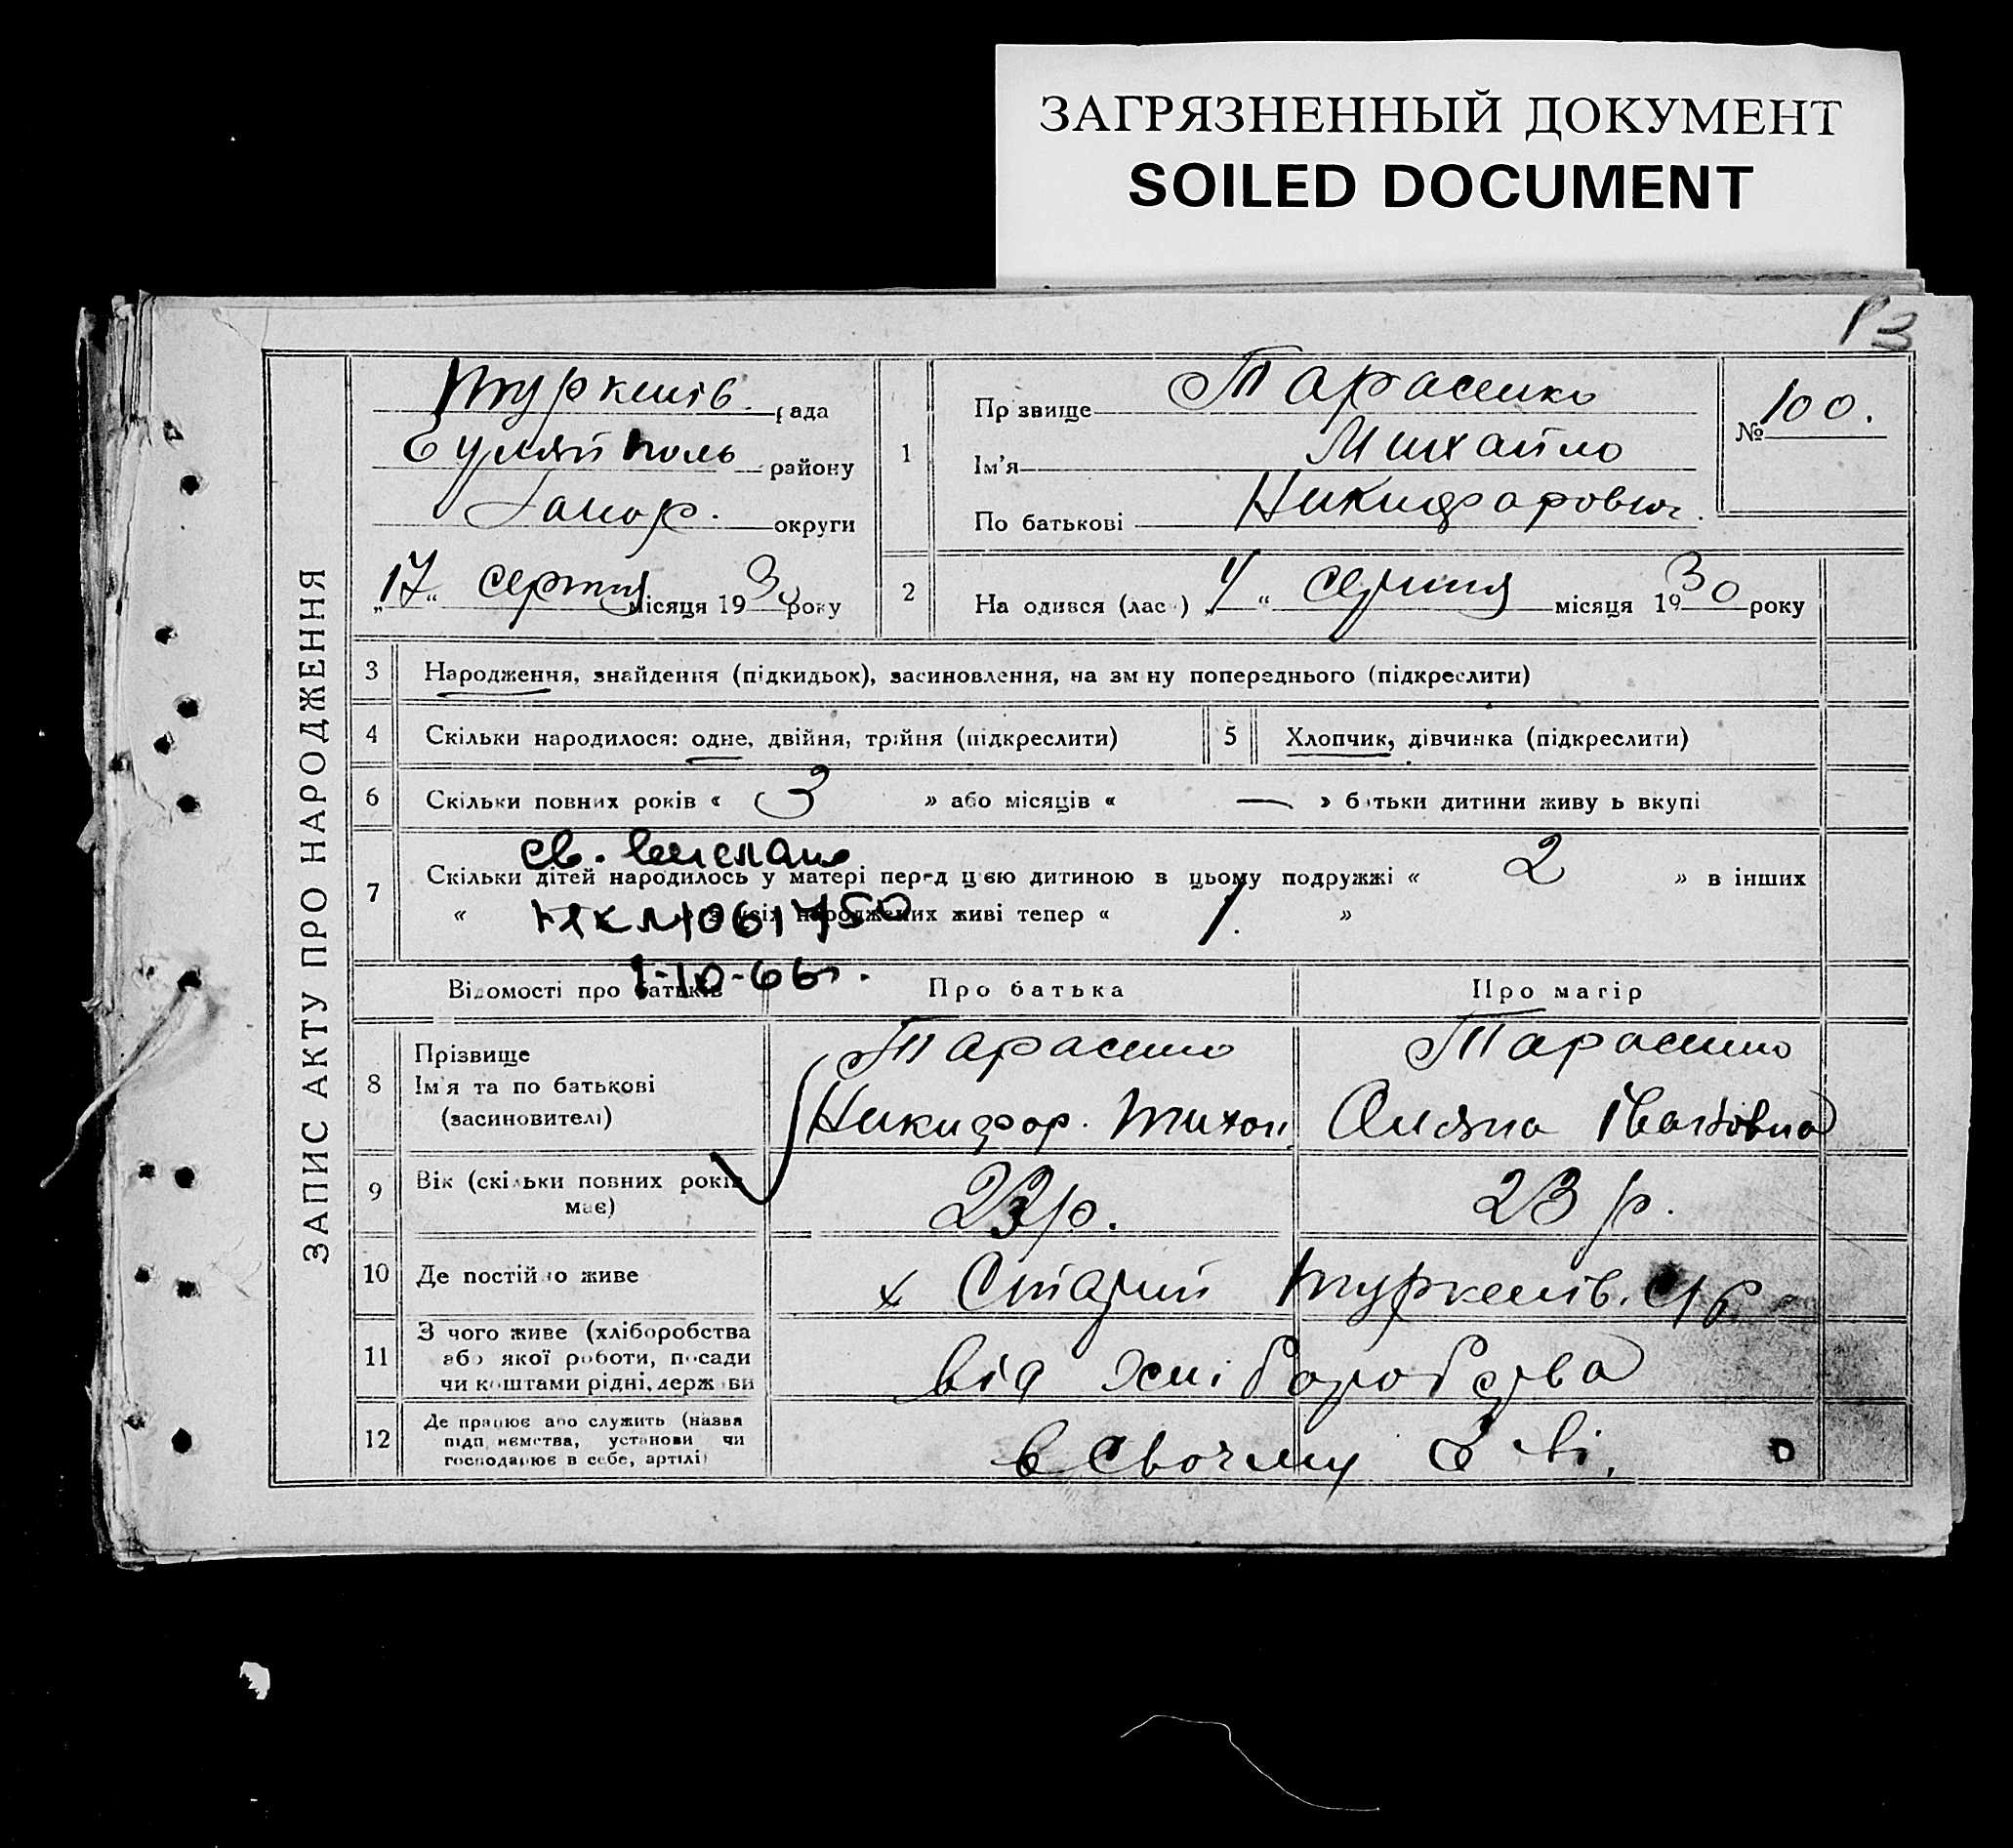 ЗАГРЯЗНЕННЫЙ ДОКУМЕНТ
SOILED DOCUMENT
13
ЗАПИС АКТУ ПРО НАРОДЖЕННЯ
Туркенів. рада
Гуляйполь району
Запор. округи
„17“ серпня місяця 1930 року
1
Прізвище Тарасенко
Ім'я Михайло
По батькові Никифорович
№ 100.
2
На одився (лас ) „4“ серпня місяця 1930 року
3 Народження, знайдення (підкидьох), засиновлення, на зм ну попереднього (підкреслити)
4 Скільки народилося: одне, двійня, трійня (підкреслити)
5 Хлопчик, дівчинка (підкреслити)
6 Скільки повних років « 3 » або місяців « — » батьки дитини живу ь вкупі
св.
7 Скільки дітей народилось у матері перед цією дитиною в цьому подружжі « 2 » в інших
« з усіх народжених живі тепер « 1. »
№ 061750
1-10-66г.
Відомості про батьків Про батька Про матір
8 Прізвище
Ім'я та по батькові
(засиновителі)
Тарасенко
Никифор. Тихон.
Тарасенко
Ивановна
9 Вік (скільки повних років
має)
23 р.
23 р.
10 Де постійно живе
х Старий Туркенів. С/р
11 З чого живе (хліборобства
або якої роботи, посади
чи коштами рідні, держави
від хліборобства
12 Де працює або служить (назва
підп иємства, установи чи
господарює в себе, артілі)
в своєму